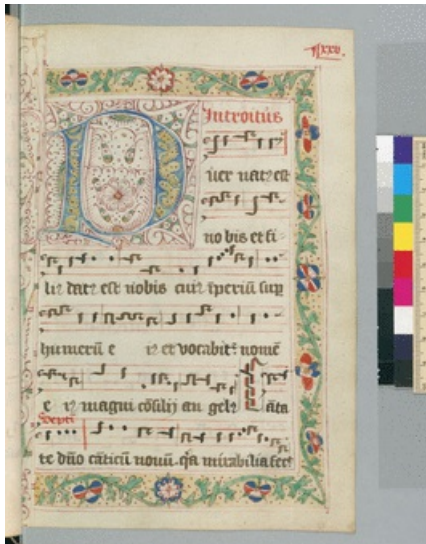 Introitus
P uer natꝰ est
no bis et fi-
liꝰ datꝰ est nobis cuiꝰ īperiū sup
humerū e iꝰ et vocabit᷑ nomē
e iꝰ magni cōsilij an gelꝰ Cāta
te dn̄o cāticū nouū q̄a mirabilia fecit